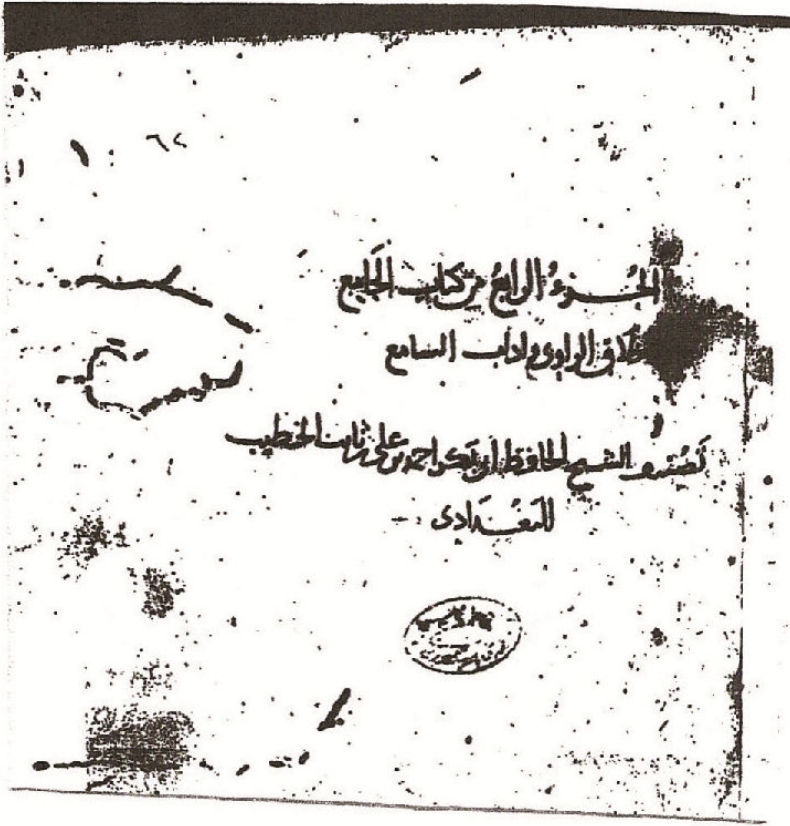 ٦٢
الجزء الرابع من كتاب الجامع
لاق الراوى واداب السامع
تصنيف الشيخ الحافظ ابى بكر احمد بن على بن ثابت الخطيب
البغدادى